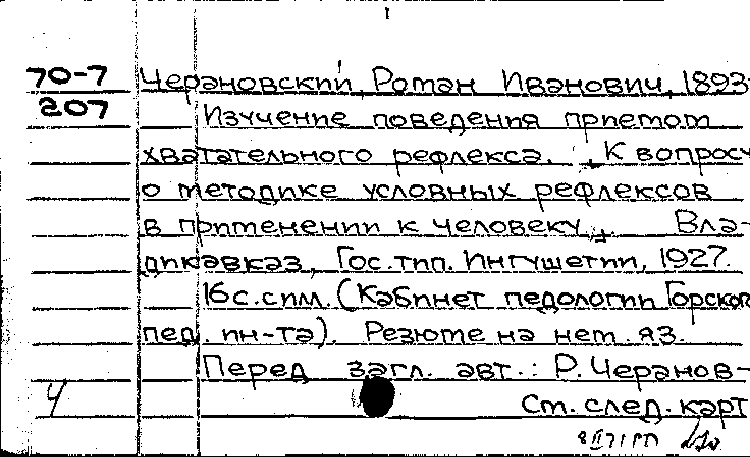 1
70-7 Черановский, Роман Иванович, 1893-
207 Изучение поведения приемом
хватательного рефлекса. К вопросу
о методике условных рефлексов
в применении к человеку. Вла-
дикавказ, Гос. тип. Ингушетии, 1927.
16 с. с илл. (Кабинет педологии Горского
пед. ин-та). Резюме на нем. яз.
Перед загл. авт.: Р. Черанов-
4 См. след. карт
8 II 71